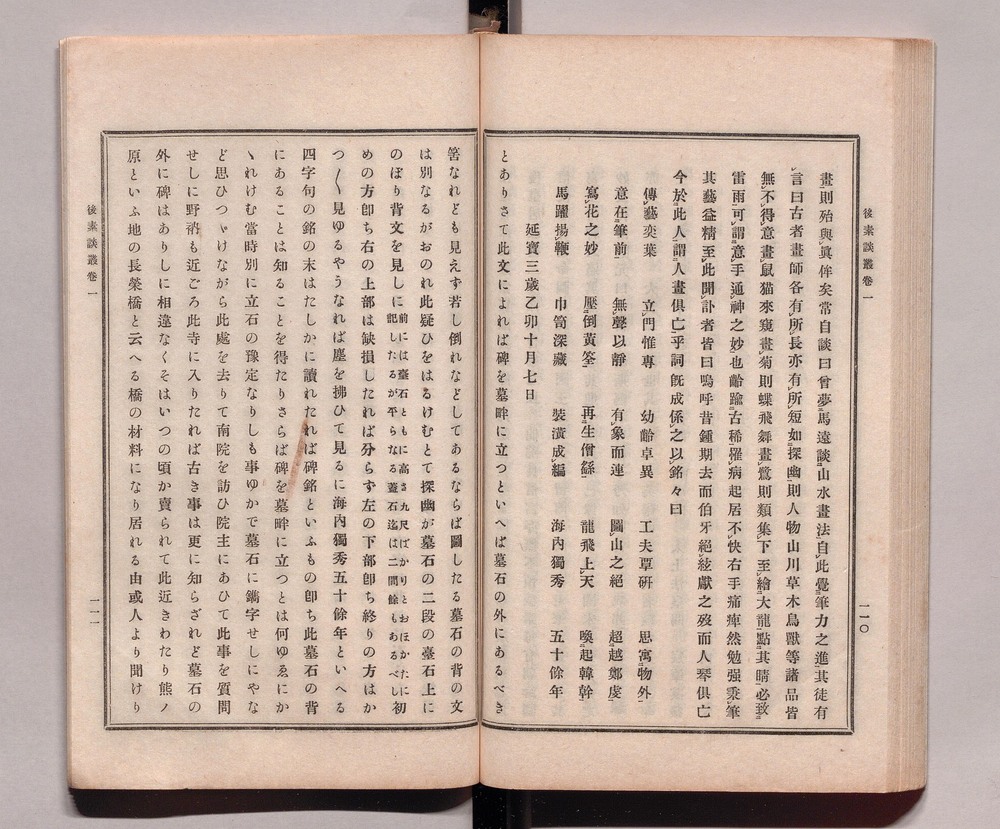 後素談叢卷一
一一〇
畫則殆與眞侔矣常自談曰曾夢馬遠談山水畫法自此覺筆力之進其徒有
言曰古者畫師各有所長亦有所短如探幽則人物山川草木鳥獸等諸品皆
無不得意畫鼠猫來窺畫菊則蝶飛舞畫鷺則類集下至繪大龍點其睛必致
雷雨可謂意手通神之妙也齡踰古稀罹病起居不快右手痛痺然勉强秉筆
其藝益精至此聞訃者皆曰嗚呼昔鍾期去而伯牙絕絃獻之歿而人琴俱亡
今於此人謂人畫俱亡乎詞旣成係之以銘々曰
傳藝奕葉 立門惟專 幼齡卓異 工夫覃硏 思寓物外
意在筆前 無聲以靜 有象而連 圖山之絕 超越鄭虔
寫花之妙 壓倒黃筌 再生僧繇 龍飛上天 喚起韓幹
馬躍揚鞭 巾笥深藏 裝潢成編 海內獨秀 五十餘年
延寶三歲乙卯十月七日
とありさて此文によれば碑を墓畔に立つといへば墓石の外にあるべき
筈なれども見えず若し倒れなどしてあるならば圖したる墓石の背の文
は別なるがおのれ此疑ひをはるけむとて探幽が墓石の二段の臺石上に
のぼり背文を見しに前には臺石ともに高さ九尺ばかりとおほかたに初
記したるが平らなる蓋石迄は二間餘もあるべし
めの方卽ち右の上部は缺損したれば分らず左の下部卽ち終りの方はか
つ〳〵見ゆるやうなれば塵を拂ひて見るに海內獨秀五十餘年といへる
四字句の銘の末はたしかに讀れたれば碑銘といふもの卽ち此墓石の背
にあることは知ることを得たりさらば碑を墓畔に立つとは何ゆゑにか
ゝれけむ當時別に立石の豫定なりしも事ゆかで墓石に鐫字せしにやな
ど思ひつゝけながら此處を去りて南院を訪ひ院主にあひて此事を質問
せしに野衲も近ごろ此寺に入りたれば古き事は更に知らざれど墓石の
外に碑はありしに相違なくそはいつの頃か賣られて此近きわたり熊ノ
原といふ地の長榮橋と云へる橋の材料になり居れる由或人より聞けり
後素談叢卷一
一一一